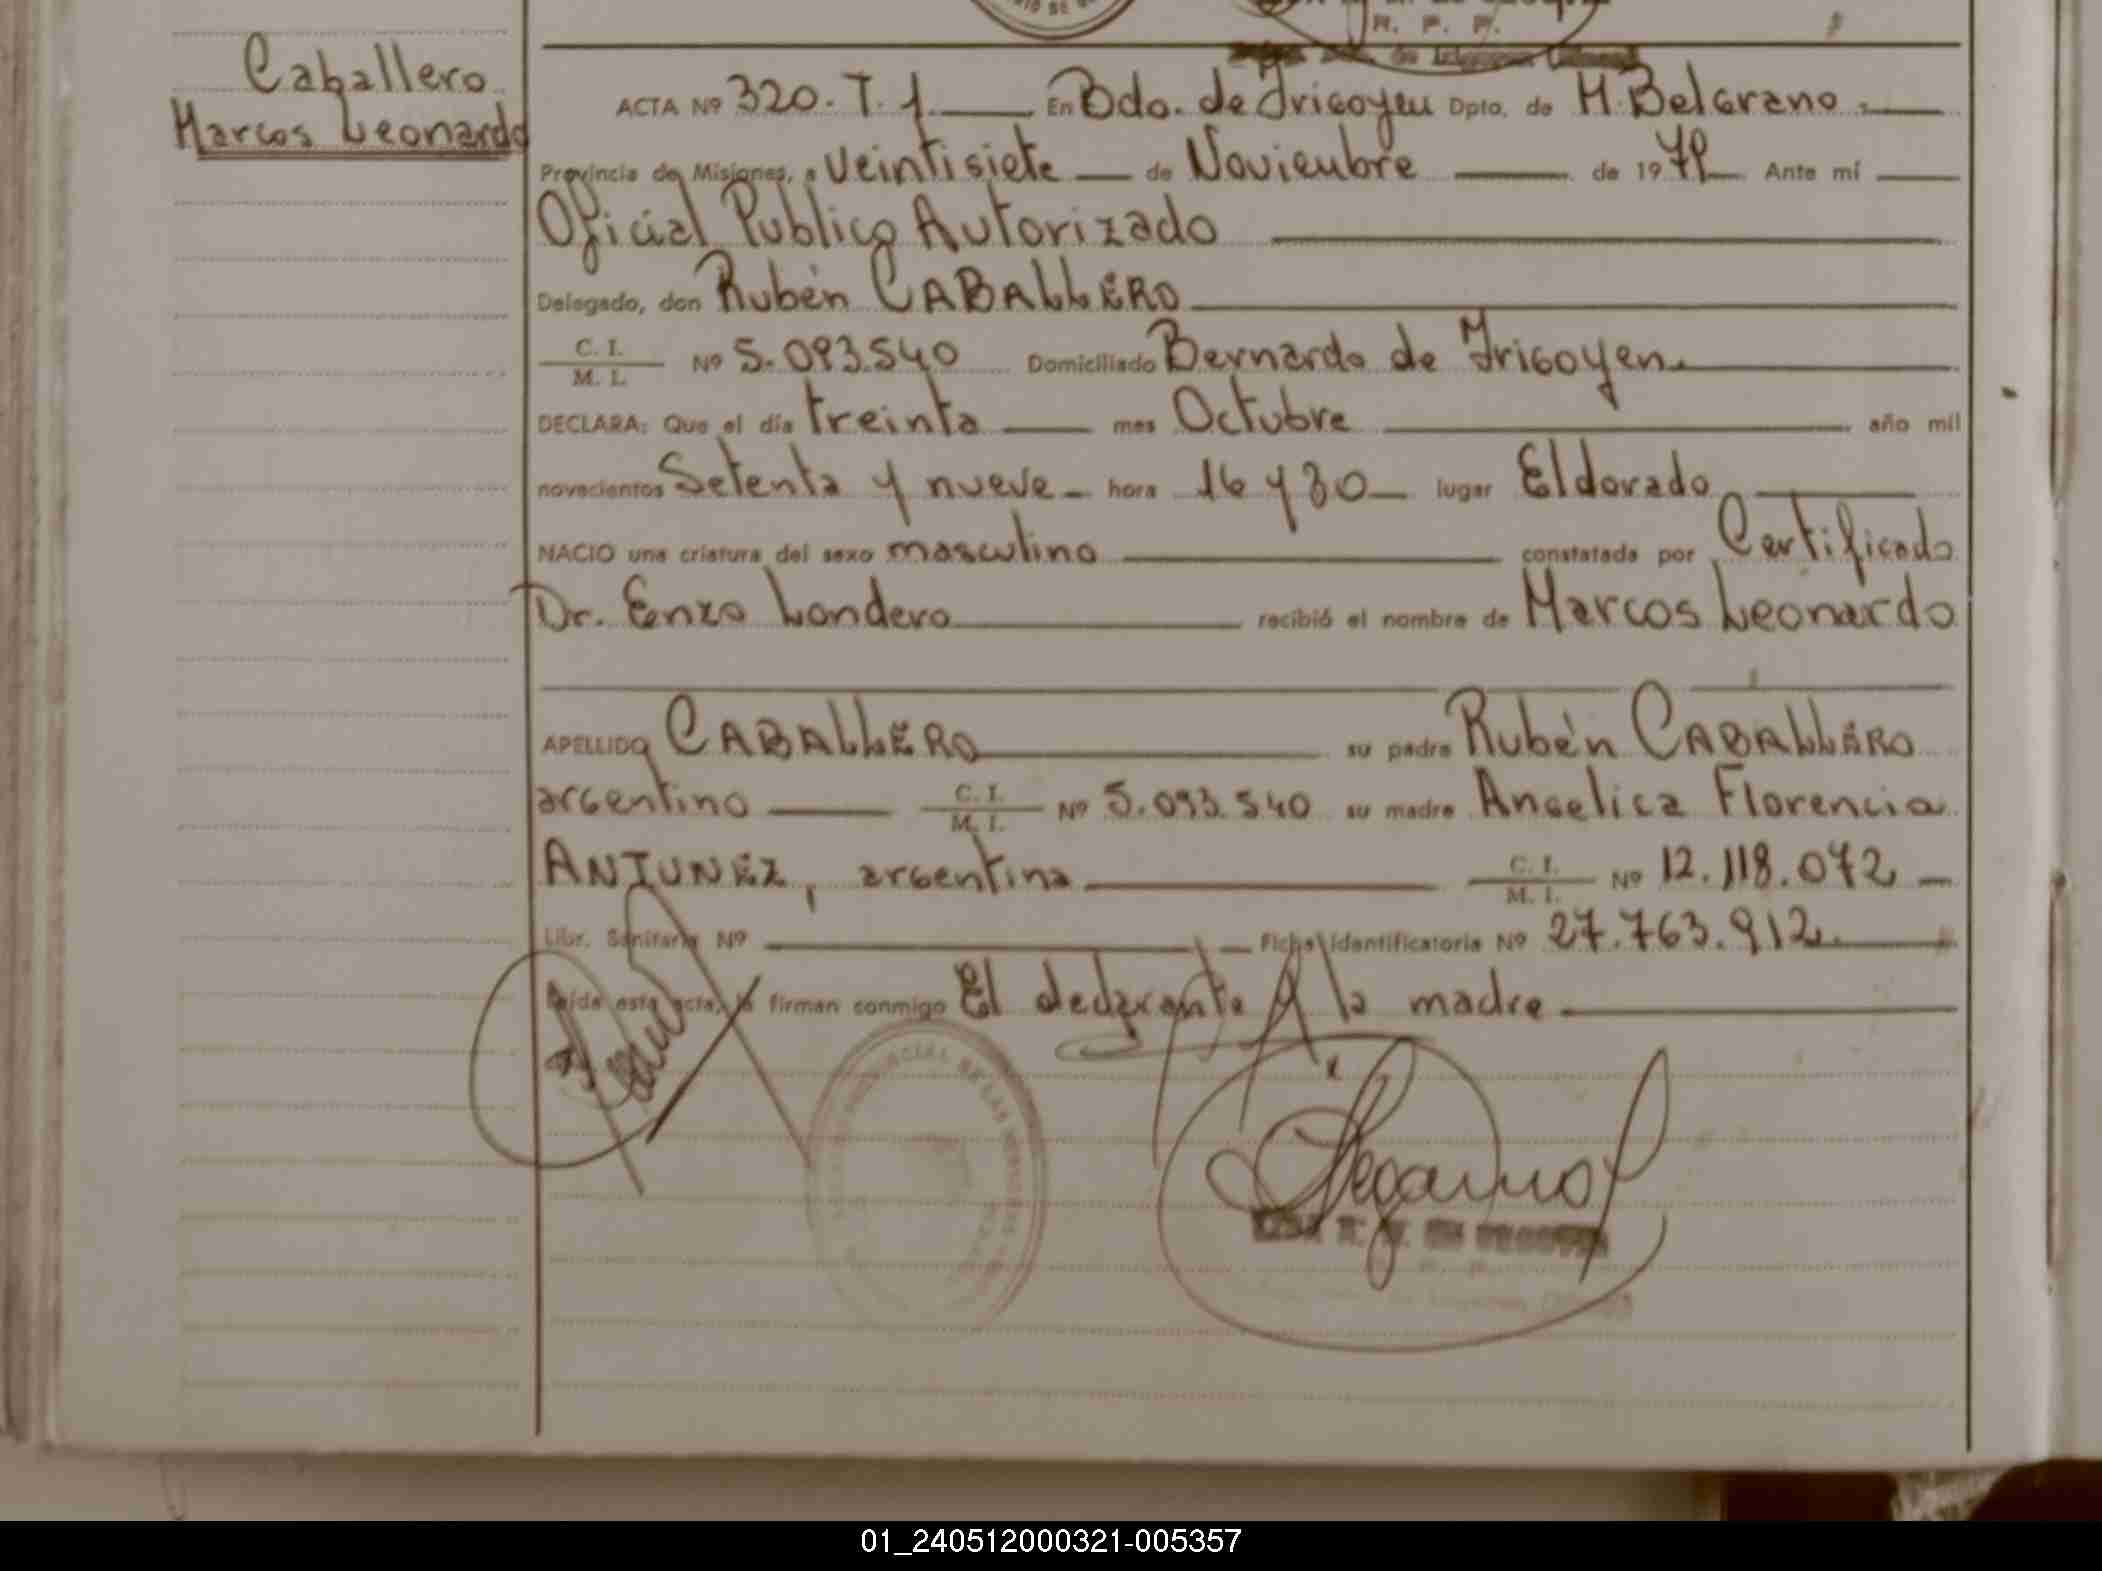 R. P. P.
Caballero
Marcos Leonardo
ACTA Nº 320. T. 1. En Bdo. de Irigoyen Dpto. de M. Belgrano
Provincia de Misiones, a veintisiete de Noviembre de 1979 Ante mí
Oficial Publico Autorizado
Delegado, don Rubén CABALLERO
C. I.
M. I. Nº 5.093.540 Domiciliado Bernardo de Irigoyen
DECLARA: Que el día treinta mes Octubre año mil
novecientos Setenta y nueve hora 16 y 30 lugar Eldorado
NACIO una criatura del sexo masculino constatada por Certificado
Dr. Enzo Londero recibió el nombre de Marcos Leonardo
APELLIDO CABALLERO su padre Rubén CABALLERO
argentino C. I. M. I. Nº 5.093.540 su madre Angelica Florencia
ANTUNEZ, argentina C. I. M. I. Nº 12.118.072
Libr. Sanitaria Nº Ficha Identificatoria Nº 27.763.912
Leída esta acta, la firman conmigo El declarante y la madre
01_240512000321-005357